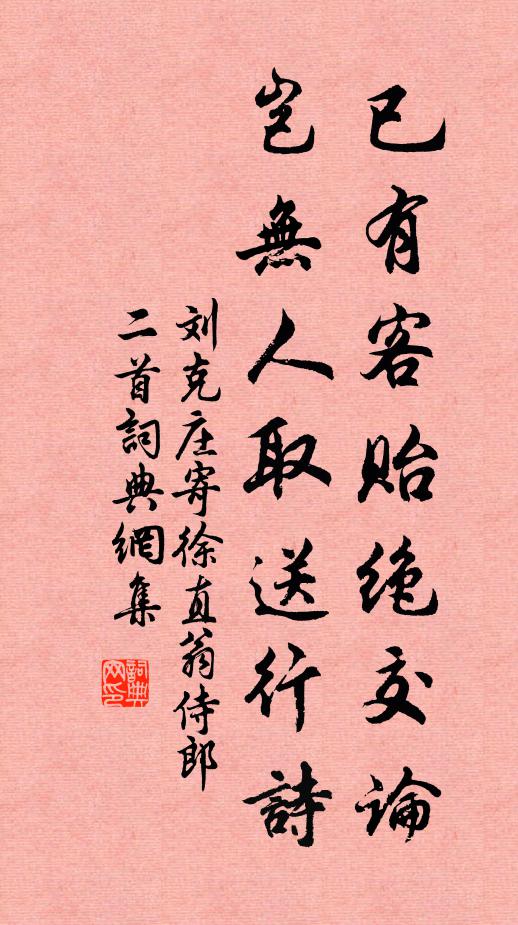 已有客贻绝交论
岂無人取送行詩
刘克庄寄徐直翁侍郎
二首詞典網集
詞典網印